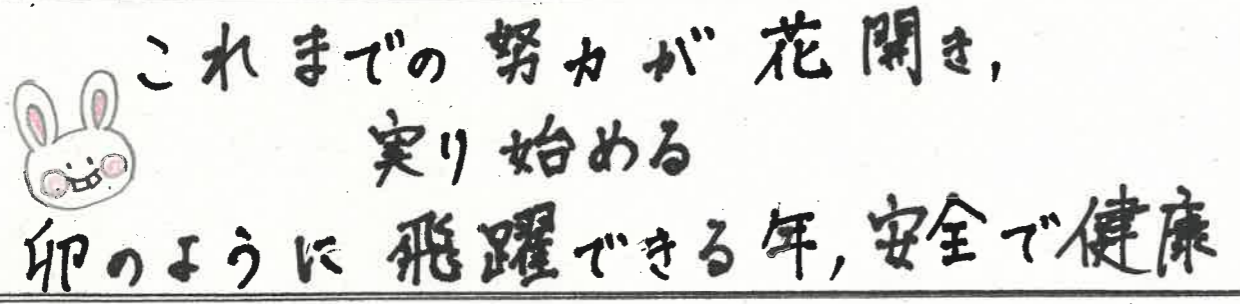 これまでの努力が花開き,
実り始める
卯のように飛躍できる年,安全で健康